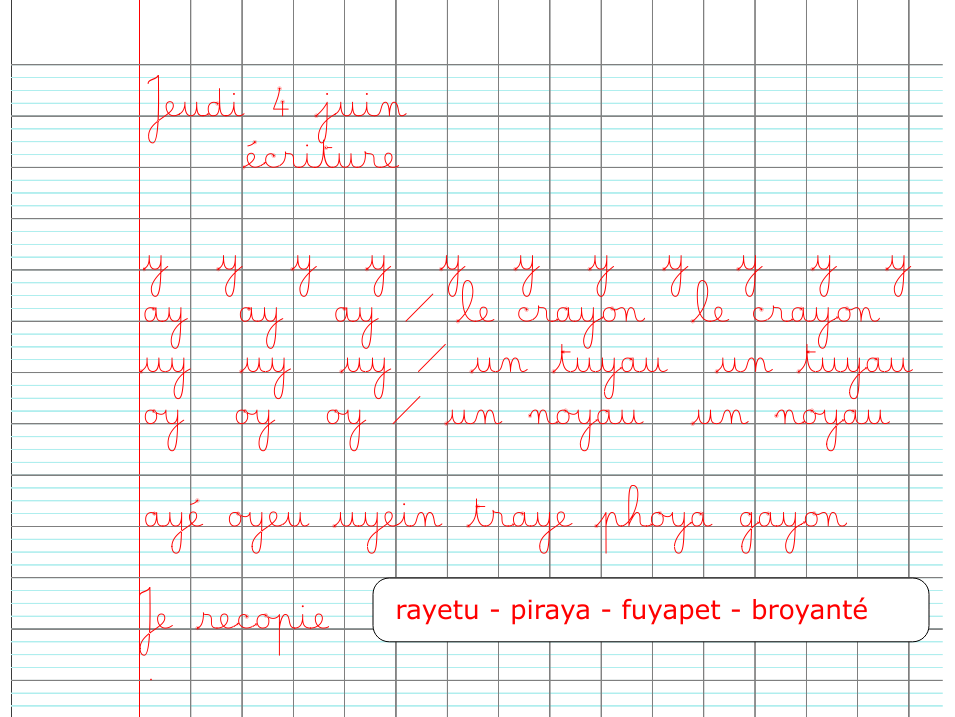 Jeudi 4 juin
écriture
y y y y y y y y y y y
ay ay ay / le crayon le crayon
uy uy uy / un tuyau un tuyau
oy oy oy / un noyau un noyau
ayé oyeu uyein traye phoya gayon
Je recopie rayetu - piraya - fuyapet - broyanté